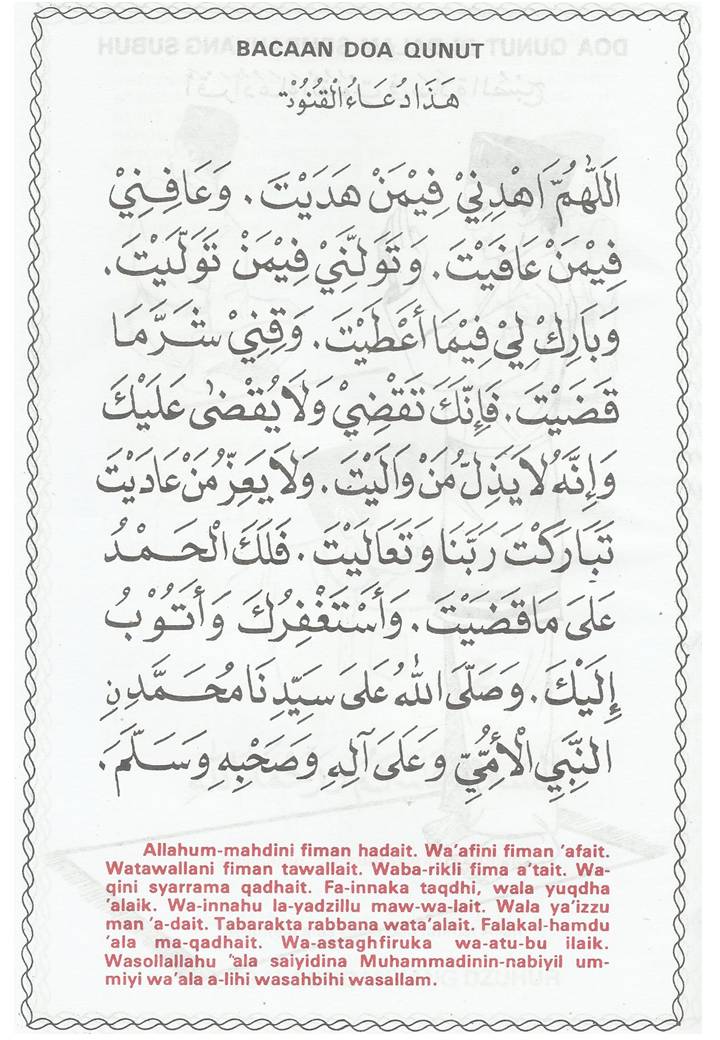 BACAAN DOA QUNUT
هَذَا دُعَاءُ الْقُنُوْتْ
اَللّٰهُمَّ اهْدِنِيْ فِيْمَنْ هَدَيْتَ. وَعَافِنِيْ
فِيْمَنْ عَافَيْتَ. وَتَوَلَّنِيْ فِيْمَنْ تَوَلَّيْتَ.
وَبَارِكْ لِيْ فِيْمَا أَعْطَيْتَ. وَقِنِيْ شَرَّ مَا
قَضَيْتَ. فَإِنَّكَ تَقْضِيْ وَلَا يُقْضٰى عَلَيْكَ
وَإِنَّهُ لَا يَذِلُّ مَنْ وَالَيْتَ. وَلَا يَعِزُّ مَنْ عَادَيْتَ
تَبَارَكْتَ رَبَّنَا وَتَعَالَيْتَ. فَلَكَ الْحَمْدُ
عَلَى مَا قَضَيْتَ. وَأَسْتَغْفِرُكَ وَأَتُوْبُ
إِلَيْكَ. وَصَلَّى اللهُ عَلَى سَيِّدِنَا مُحَمَّدِنِ
النَّبِيِّ الْأُمِّيِّ وَعَلَى آلِهِ وَصَحْبِهِ وَسَلَّمَ.
Allahum-mahdini fiman hadait. Wa'afini fiman 'afait.
Watawallani fiman tawallait. Waba-rikli fima a'tait. Wa-
qini syarrama qadhait. Fa-innaka taqdhi, wala yuqdha
'alaik. Wa-innahu la-yadzillu maw-wa-lait. Wala ya'izzu
man 'a-dait. Tabarakta rabbana wata'alait. Falakal-hamdu
'ala ma-qadhait. Wa-astaghfiruka wa-atu-bu ilaik.
Wasollallahu 'ala saiyidina Muhammadinin-nabiyil um-
miyi wa'ala a-lihi wasahbihi wasallam.